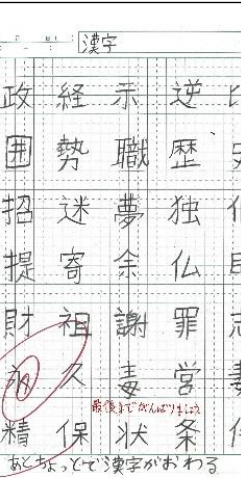 漢字
政経示逆比
囲勢職歴史
招迷夢独
提寄余仏
財祖謝罪志
永久毒営妻
精保状条件
最後までがんばりましょう
あとちょっとで漢字がおわる